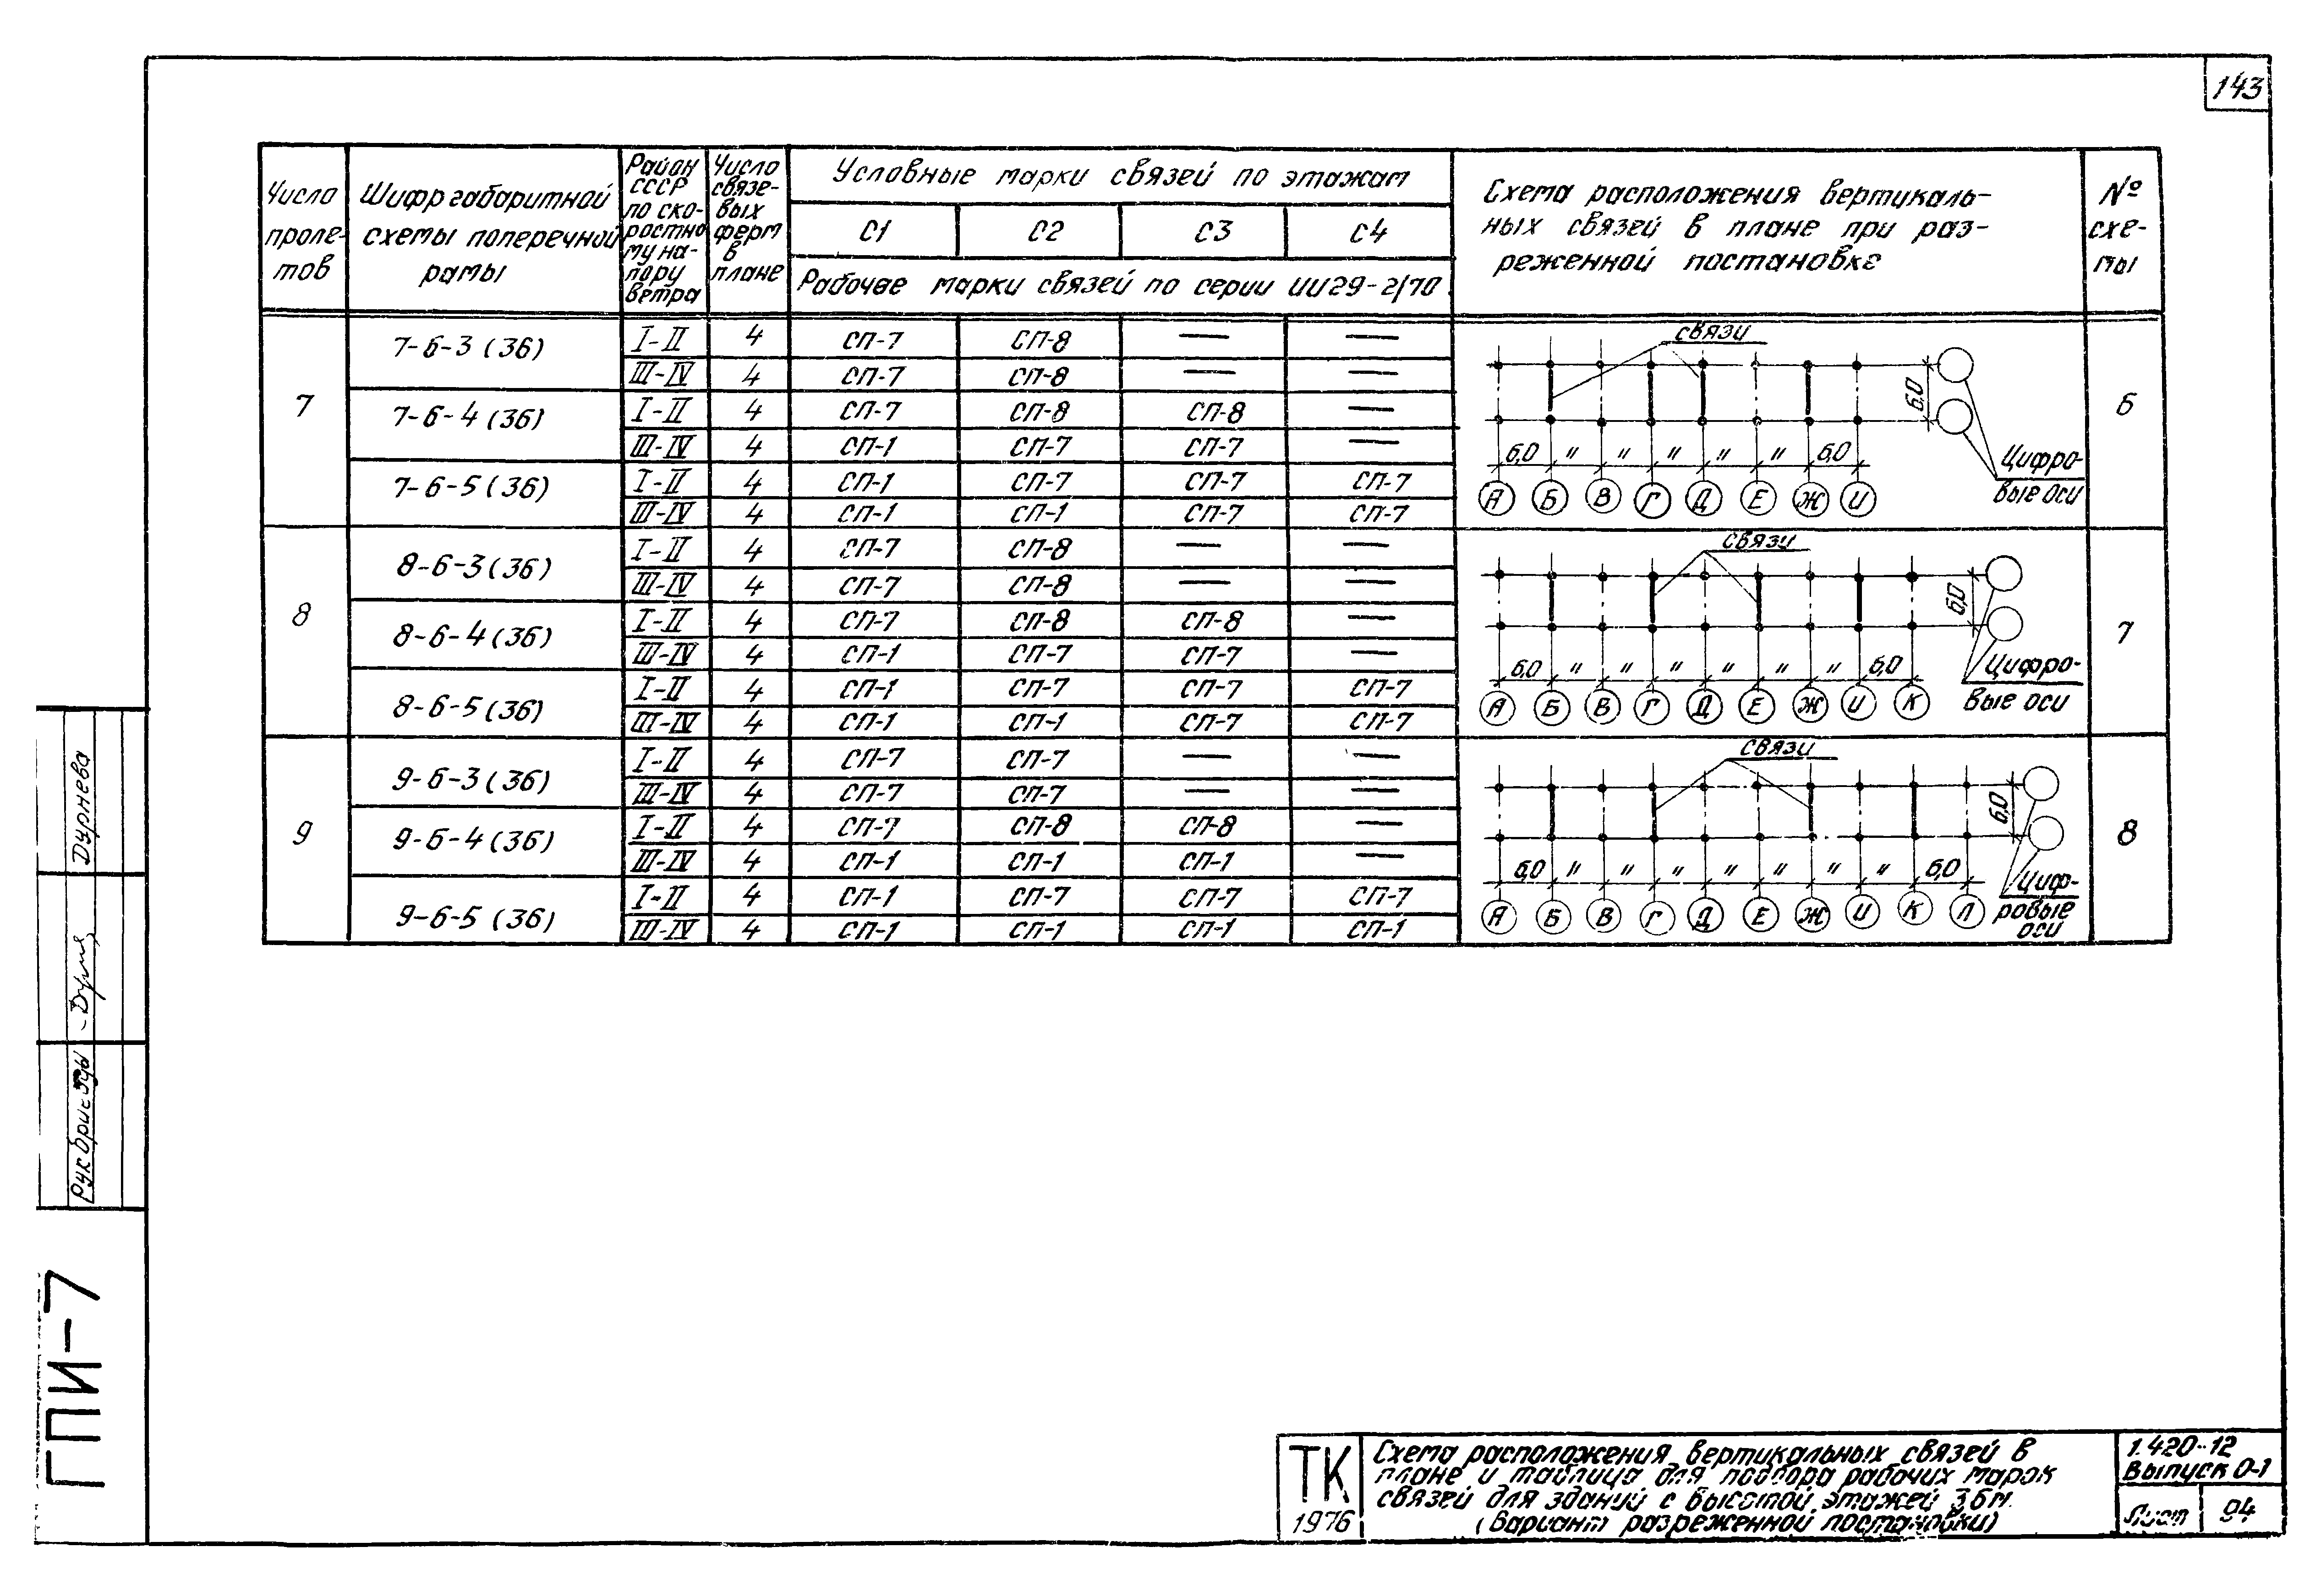 143
Число проле-тов
Шифр габаритной схемы поперечной рамы
Район СССР по ско-ростно му на-пору ветра
Число связе-вых ферм в плане
Условные марки связей по этажам
С1 С2 С3 С4
Рабочие марки связей по серии ИИ29-2/70
Схема расположения вертикаль-
ных связей в плане при раз-
реженной постановке
№ схе-мы
7
7-6-3 (36)
I-II 4 СП-7 СП-8 — —
III-IV 4 СП-7 СП-8 — —
7-6-4 (36)
I-II 4 СП-7 СП-8 СП-8 —
III-IV 4 СП-1 СП-7 СП-7 —
7-6-5 (36)
I-II 4 СП-1 СП-7 СП-7 СП-7
III-IV 4 СП-1 СП-1 СП-7 СП-7
связи
6,0
6,0 " " " " " 6,0
А Б В Г Д Е Ж И
Цифро-
вые оси
6
8
8-6-3 (36)
I-II 4 СП-7 СП-8 — —
III-IV 4 СП-7 СП-8 — —
8-6-4 (36)
I-II 4 СП-7 СП-8 СП-8 —
III-IV 4 СП-1 СП-7 СП-7 —
8-6-5 (36)
I-II 4 СП-1 СП-7 СП-7 СП-7
III-IV 4 СП-1 СП-1 СП-7 СП-7
связи
6,0
6,0 " " " " " " 6,0
А Б В Г Д Е Ж И К
Цифро-
вые оси
7
9
9-6-3 (36)
I-II 4 СП-7 СП-7 — —
III-IV 4 СП-7 СП-7 — —
9-6-4 (36)
I-II 4 СП-7 СП-8 СП-8 —
III-IV 4 СП-1 СП-1 СП-1 —
9-6-5 (36)
I-II 4 СП-1 СП-7 СП-7 СП-7
III-IV 4 СП-1 СП-1 СП-1 СП-1
связи
6,0
6,0 " " " " " " " 6,0
А Б В Г Д Е Ж И К Л
Циф-
ровые
оси
8
Рук бригады
Дурнева
ГПИ-7
ТК
1976
Схема расположения вертикальных связей в
плане и таблица для подбора рабочих марок
связей для зданий с высотой этажей 3,6м.
(Вариант разреженной постановки)
1.420-12
Выпуск 0-1
Лист 94